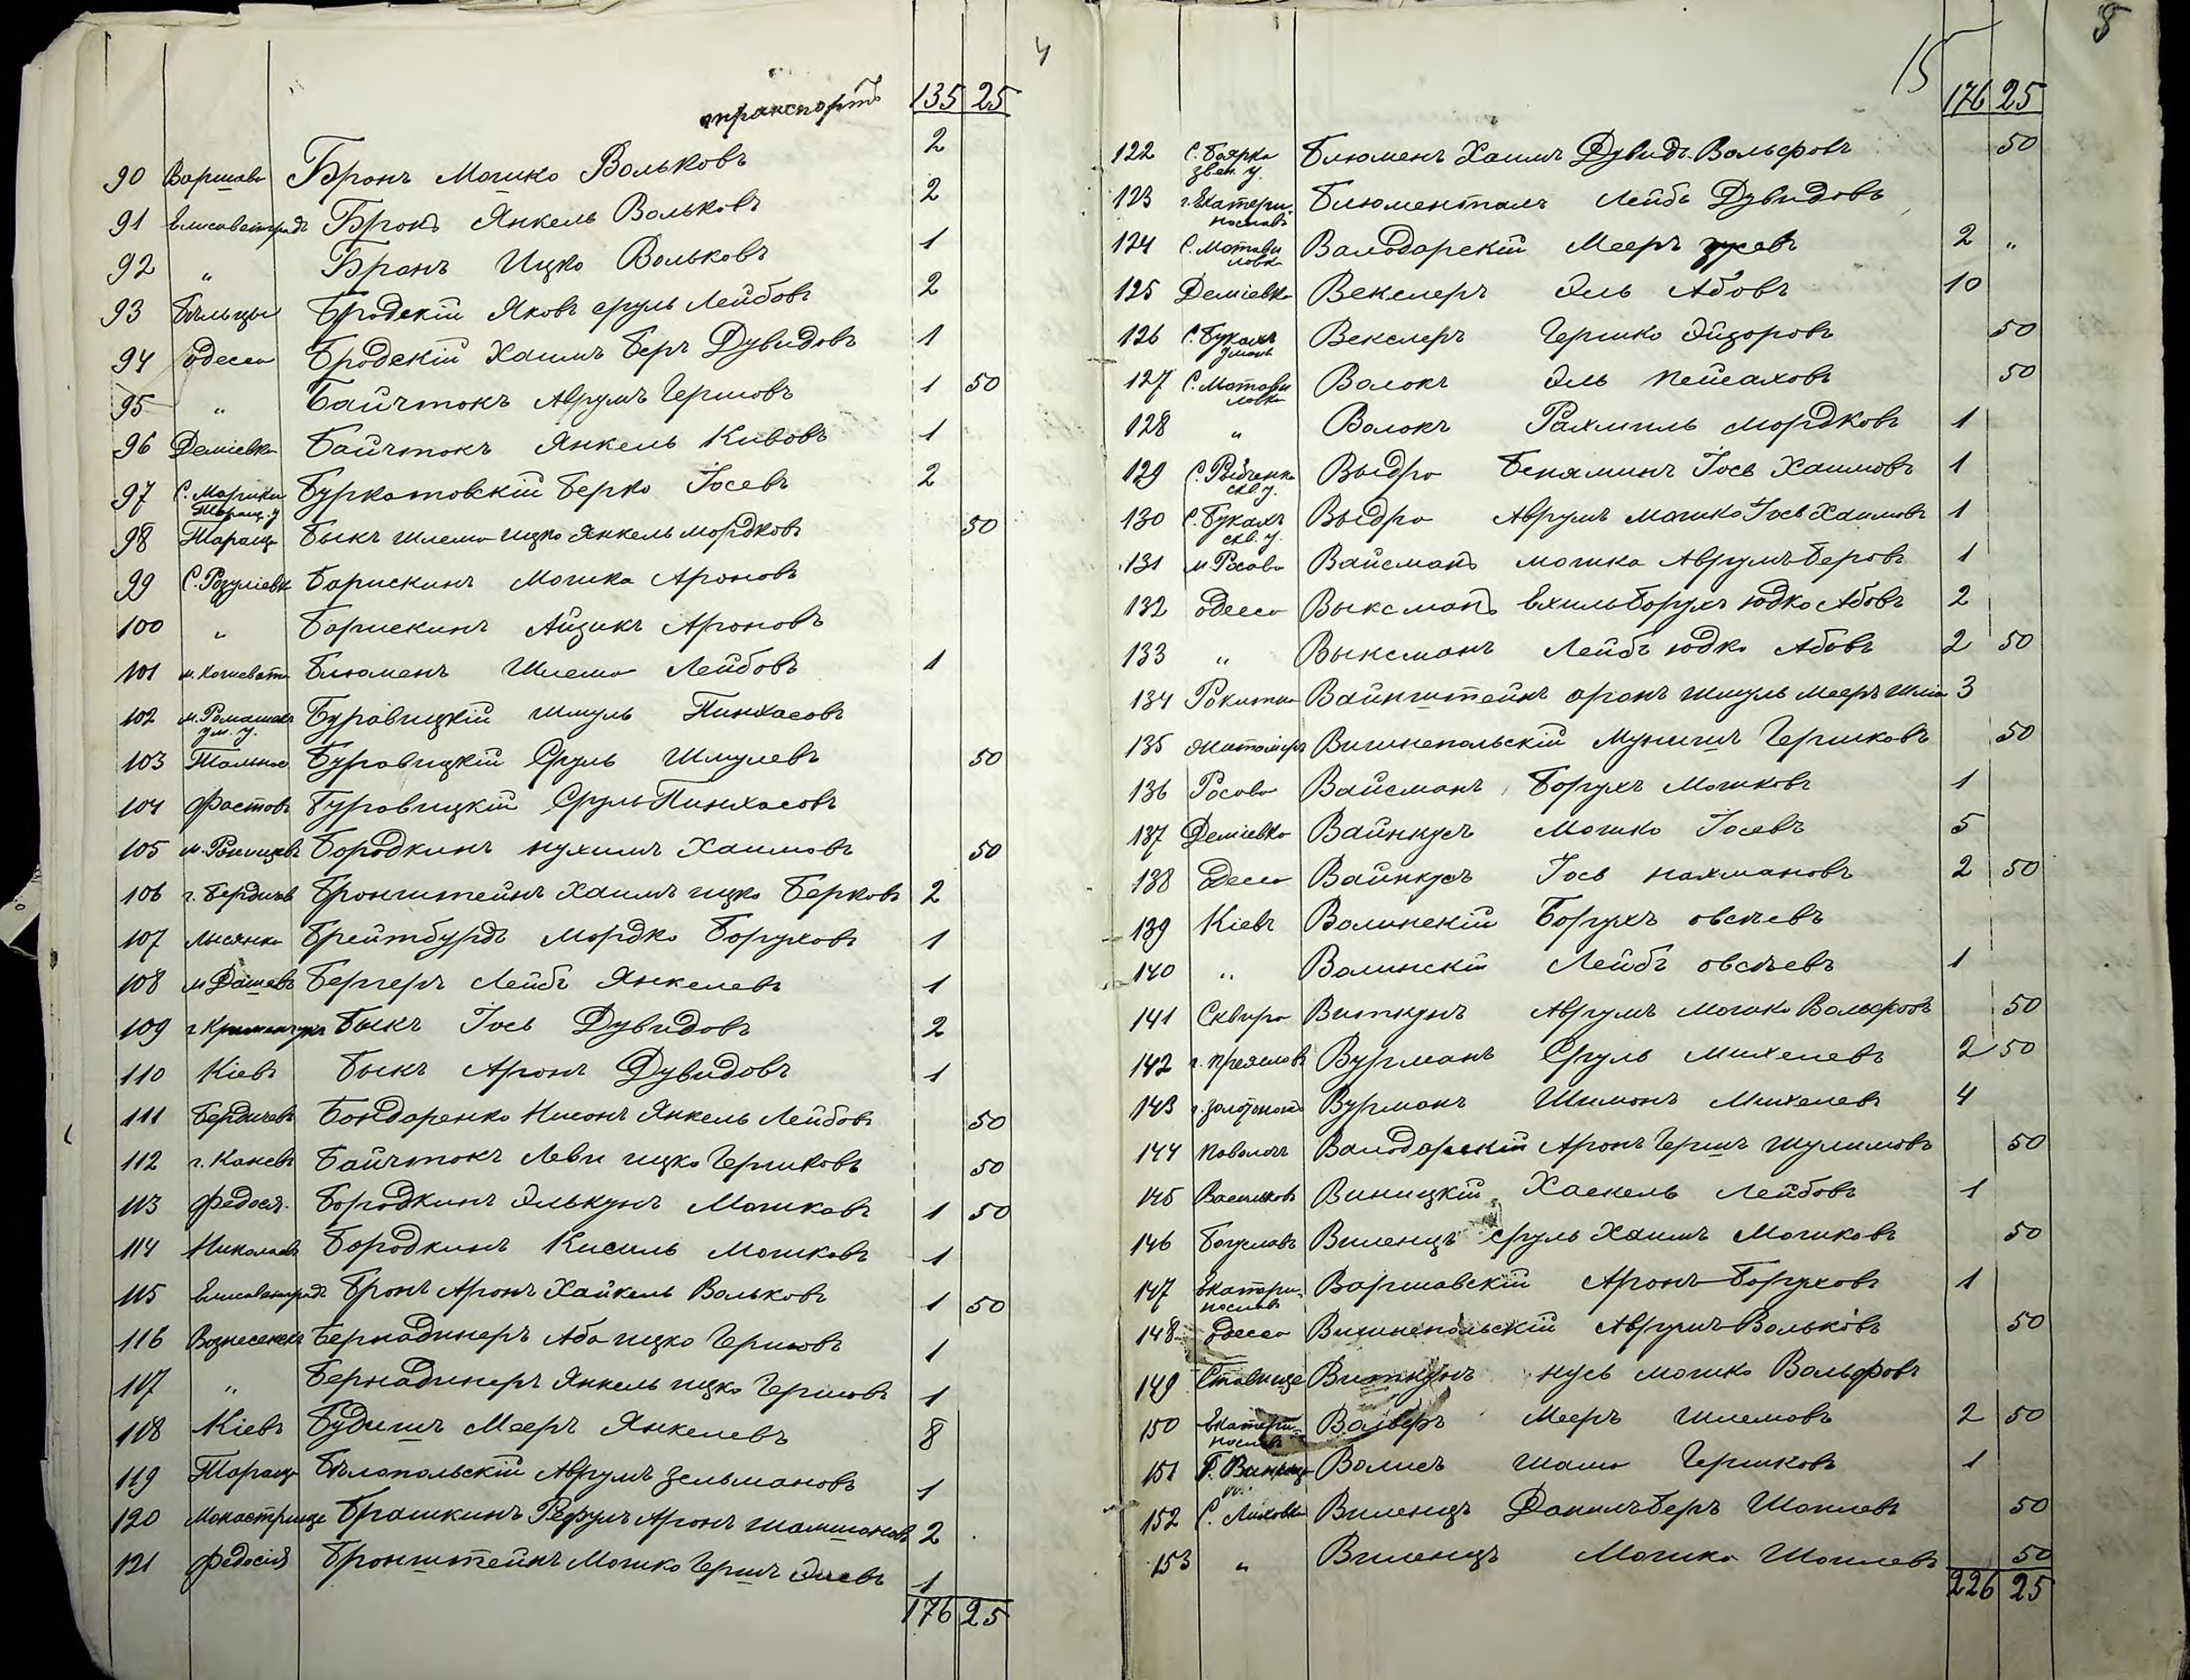 4
транспортъ 135 25
90 Варшава Бронъ Мошко Вольковъ 2
91 Елисаветградъ Бронъ Янкель Вольковъ 2
92 " Бронъ Ицко Вольковъ 1
93 Бѣльцы Бродскій Яковъ сруль Лейбовъ 2
94 Одесса Бродскій Хаимъ Беръ Дувидовъ 1
95 " Байчтокъ Аврумъ Гершовъ 1 50
96 Деміевка Байчтокъ Янкель Кивовъ 1
97 Таращ. у Буркатовскій Берко Іосевъ 2
98 Тараща Быкъ Шлемо ицко Янкель Мордковъ 50
99 Барискинъ Мошка Ароновъ
100 " Борискинъ Айзикъ Ароновъ
101 м. Кошевата Блюменъ Шлемо Лейбовъ 1
102 ум. у. Буравицкій Шмуль Пинхасовъ
103 Тальное Буравицкій Сруль Шмулевъ 50
104 Фастовъ Буравицкій Сруль Пинхасовъ
105 Бородкинъ нухимъ Хаимовъ 50
106 г. Бердичевъ Бронштейнъ Хаимъ ицко Берковъ 2
107 Лысянка Брейтбурдъ Мордко Боруховъ 1
108 м Дашевъ Бергеръ Лейбъ Янкелевъ 1
109 г Кременчукъ Быкъ Іось Дувидовъ 2
110 Кіевъ Быкъ Аронъ Дувидовъ 1
111 Бердичевъ Бондаренко Нисонъ Янкель Лейбовъ 50
112 г. Каневъ Байчтокъ Леви ицко Гершковъ 50
113 Федосія Бородкинъ Элькунъ Мошковъ 1 50
114 Николаевъ Бородкинъ Кисиль Мошковъ 1
115 Елисаветградъ Бронъ Аронъ Хайкель Вольковъ 1 50
116 Вознесенскъ Бернадинеръ Аба ицко Гершовъ 1
117 " Бернадинеръ Янкель ицко Гершовъ 1
118 Кіевъ Будишъ Мееръ Янкелевъ 8
119 Тараща Бѣлопольскій Аврумъ Зельмановъ 1
120 Монастрище Брашкинъ Рефулъ Аронъ Шамшоновъ 2
121 Федосія Бронштейнъ Мошко Гершъ Элевъ 1
176 25
5
15 176 25
122 С. Боярка Блюменъ Хаимъ Дувидъ Вольфовъ 50
звен. у.
123 г. Екатери- Блюменталъ Лейбъ Дувидовъ
нославъ
124 С. Мотови Валодарскій Мееръ 2 "
ловка
125 Деміевка Векслеръ Эль Абовъ 10
126 С. Букахъ Векслеръ Гершко Эйзоровъ 50
умань
127 С. Мотови Волокъ Эль Пейсаховъ 50
ловка
128 " Волокъ Рахмиль Мордковъ 1
129 Выдро Беняминъ Іось Хаимовъ 1
скв. у.
130 С. Букахъ Выдро Аврумъ Мошко Іось Хаимовъ 1
скв. у.
131 м. Росава Вайсманъ мошка Аврумъ Беровъ 1
132 одесса Выксманъ Ехиль Борухъ юдко Абовъ 2
133 " Выксманъ Лейбъ юдко Абовъ 2 50
134 Рокитна Вайнштейнъ аронъ шмуль Мееръ 3
135 Житоміръ Вишнепольскій Мунишъ Гершковъ 50
136 Росава Вайсманъ Борухъ Мошковъ 1
137 Деміевка Вайнкусъ Мошко Іосевъ 5
138 Одесса Вайнкусъ Іось Нахмановъ 2 50
139 Кіевъ Волинскій Борухъ овсѣевъ
140 " Волинскій Лейбъ овсѣевъ 1
141 Сквира Виткунъ Аврумъ Мошко Вольфовъ 50
142 г. Преяславъ Вурманъ Сруль Михелевъ 2 50
143 г. Золотоноша Вурманъ Шимонъ Михелевъ 4
144 Паволочъ Валодарскій Аронъ Гершъ Шулимовъ 50
145 Васильковъ Виницкій Хаскель Лейбовъ 1
146 Богуславъ Виленцъ сруль Хаимъ Мошковъ 50
147 Екатери- Варшавскій Аронъ Боруховъ 1
нославъ
148 Одесса Вишнепольскій Аврумъ Вольковъ 50
149 Ставище Виткунъ нусь мошко Вольфовъ
150 Екатери- Мееръ Шлемовъ 2 50
нославъ
151 Г. Винница Волисъ Шато Гершковъ 1
152 С. Лиховка Виленцъ Данилъ Беръ Шоилевъ 50
153 " Виленцъ Мошко Шоилевъ 50
226 25